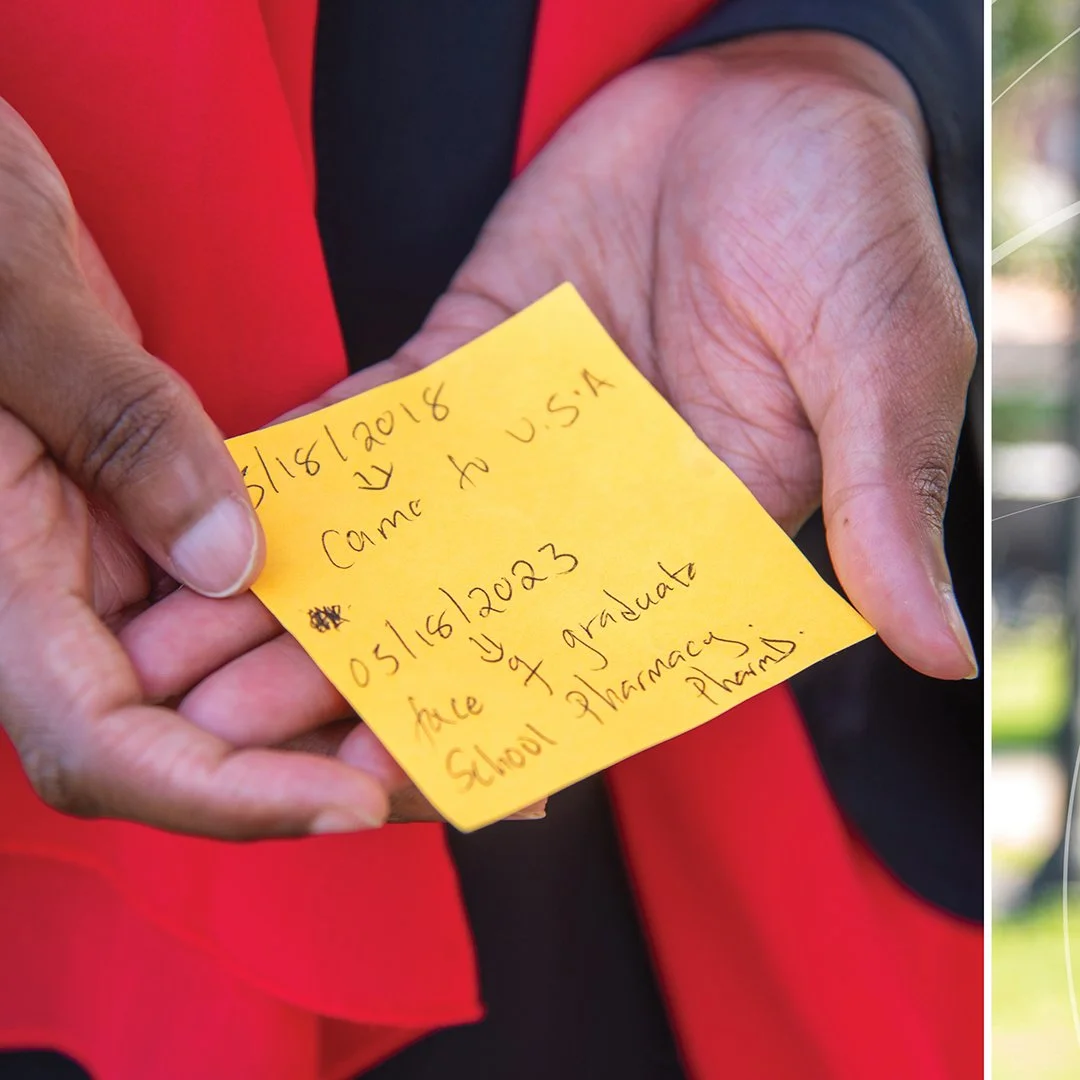 5/18/2018
Came to U.S.A
05/18/2023
face of graduate
School Pharmacy.
PharmD.